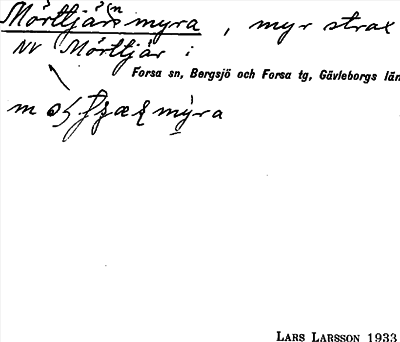 Mörttjärnsmyra, myr strax
NV Mörttjär i
Forsa sn, Bergsjö och Forsa tg, Gävleborgs län
myra
LARS LARSSON 1933